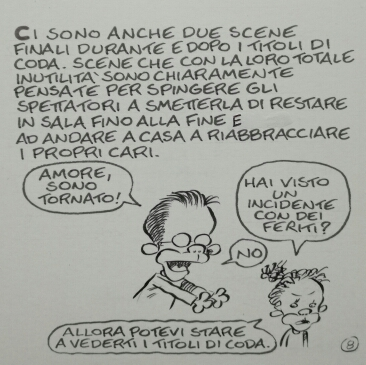 CI SONO ANCHE DUE SCENE
FINALI DURANTE E DOPO I TITOLI DI
CODA. SCENE CHE CON LA LORO TOTALE
INUTILITA' SONO CHIARAMENTE
PENSATE PER SPINGERE GLI
SPETTATORI A SMETTERLA DI RESTARE
IN SALA FINO ALLA FINE E
AD ANDARE A CASA A RIABBRACCIARE
I PROPRI CARI.
AMORE,
SONO
TORNATO!
HAI VISTO
UN
INCIDENTE
CON DEI
FERITI?
NO
ALLORA POTEVI STARE
A VEDERTI I TITOLI DI CODA.
8